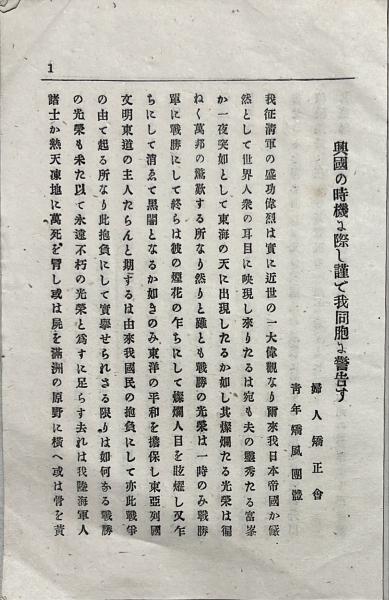 1
興國の時機に際し謹で我同胞に警告す
婦人矯正會
靑年矯風團體
我征淸軍の盛功偉烈は實に近世の一大偉觀なり爾來我日本帝國か儼
然として世界人衆の耳目に映現し來りたるは宛も夫の靈秀たる富峯
か一夜突如として東海の天に出現したるか如し其燦爛たる光榮は徧
ねく萬邦の驚歎する所なり然りと雖とも戰勝の光榮は一時のみ戰勝
軍に戰勝にして終らは彼の煙花の乍ちにして燦爛人目を眩燿し又乍
ちにして消ゑて黑闇となるか如きのみ東洋の平和を擔保し東亞列國
文明東道の主人たらんと期するは由來我國民の抱負にして亦此戰爭
の由て起る所なり此抱負にして實擧せられさる限りは如何なる戰勝
の光榮も未た以て永遠不朽の光榮と爲すに足らす去れは我陸海軍人
諸士か熱天凍地に萬死を冐し或は屍を滿洲の原野に橫へ或は骨を黃